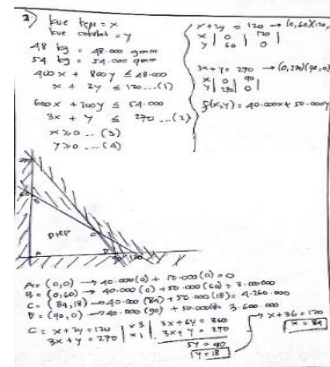 2) kue kepu = x
kue cokelat = y
48 kg = 48.000 gram
54 kg = 54.000 gram
400x + 800y ≤ 48.000
x + 2y ≤ 120 ... (1)
600x + 200y ≤ 54.000
3x + y ≤ 270 ... (2)
x ≥ 0 ... (3)
y ≥ 0 ... (4)
x + 2y = 120 → (0,60)(120,
x | 0 | 120
y | 60 | 0
3x + y = 270 → (0,270)(90,0)
x | 0 | 90
y | 270 | 0
f(x,y) = 40.000x + 50.000y
DHP
A = (0,0) → 40.000(0) + 50.000(0) = 0
B = (0,60) → 40.000(0) + 50.000(60) = 3.000.000
C = (84,18) → 40.000(84) + 50.000(18) = 4.260.000
D = (90,0) → 40.000(90) + 50.000(0) = 3.600.000
C = x + 2y = 120 | x3 | 3x + 6y = 360
3x + y = 270 | x1 | 3x + y = 270
5y = 90
y = 18
x + 36 = 120
x = 84